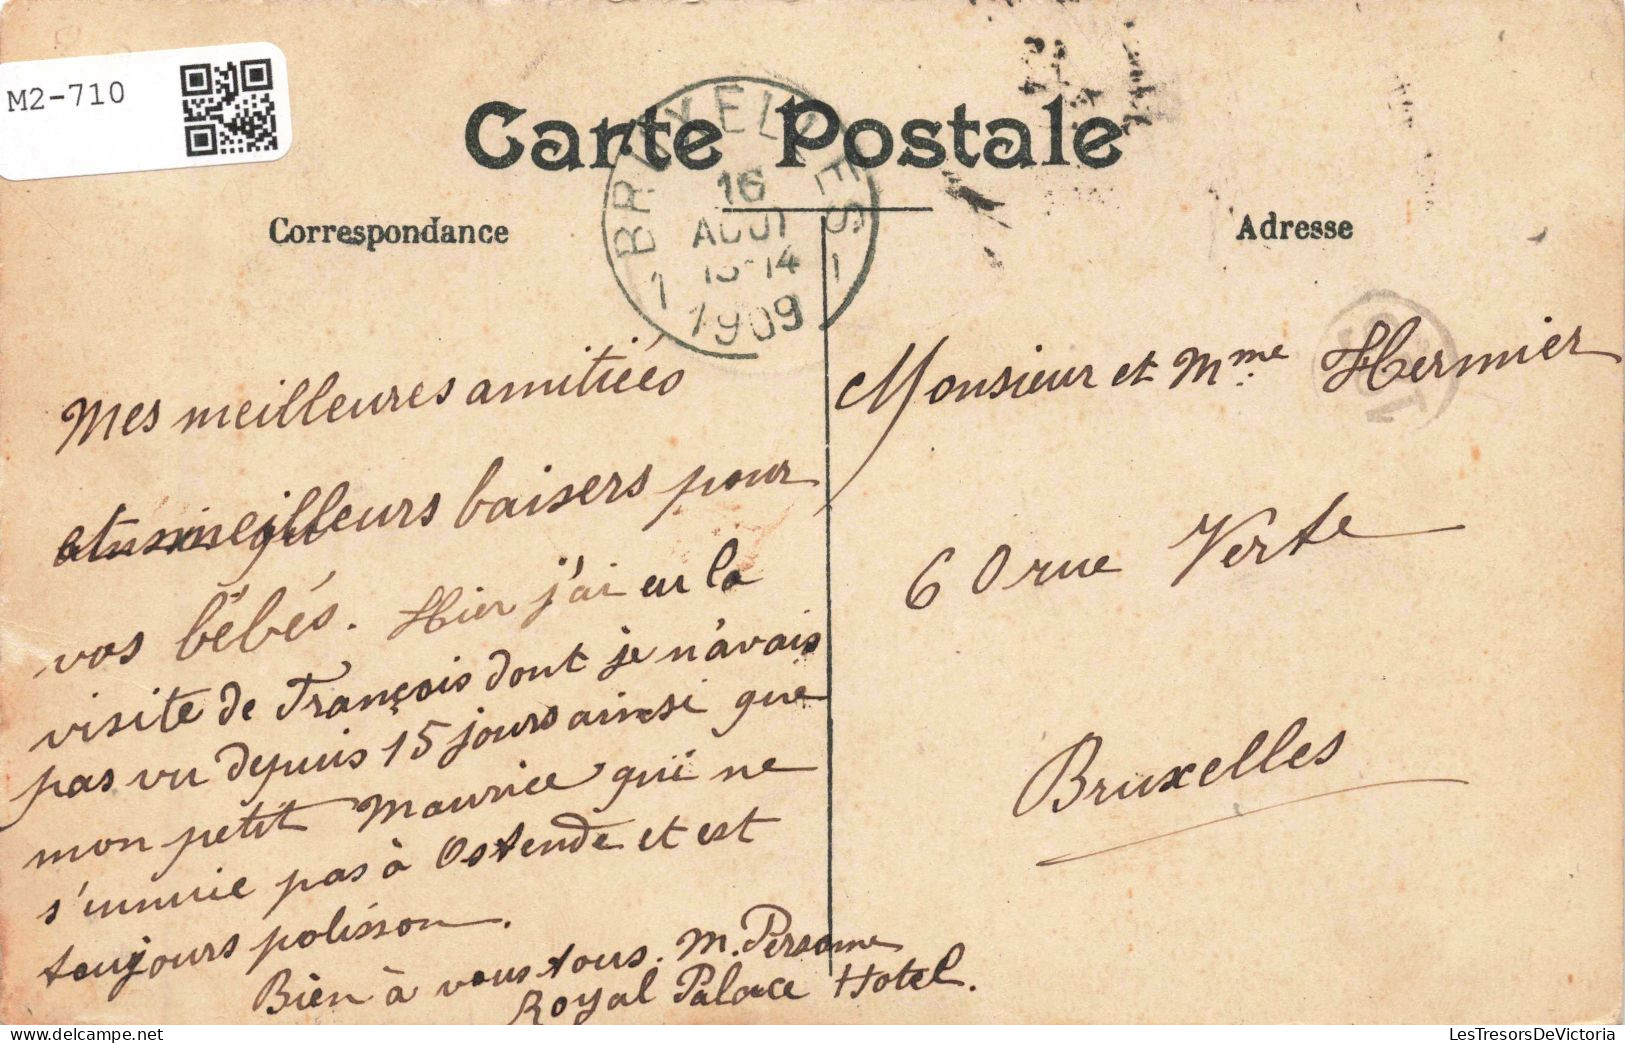 M2-710
Carte Postale
Correspondance
Adresse
BRUXELLES
16
AOUT
13-14
1 1
1909
Mes meilleures amitiés
meilleurs baisers pour
vos bébés. Hier j'ai eu la
visite de François dont je n'avais
pas vu depuis 15 jours ainsi que
mon petit Maurice qui ne
s'ennuie pas à Ostende et est
toujours polisson.
Bien à vous tous. M. Persome
Royal Palace Hotel.
Monsieur et Mme Hermier
60 rue Verte
Bruxelles
LesTresorsDeVictoria